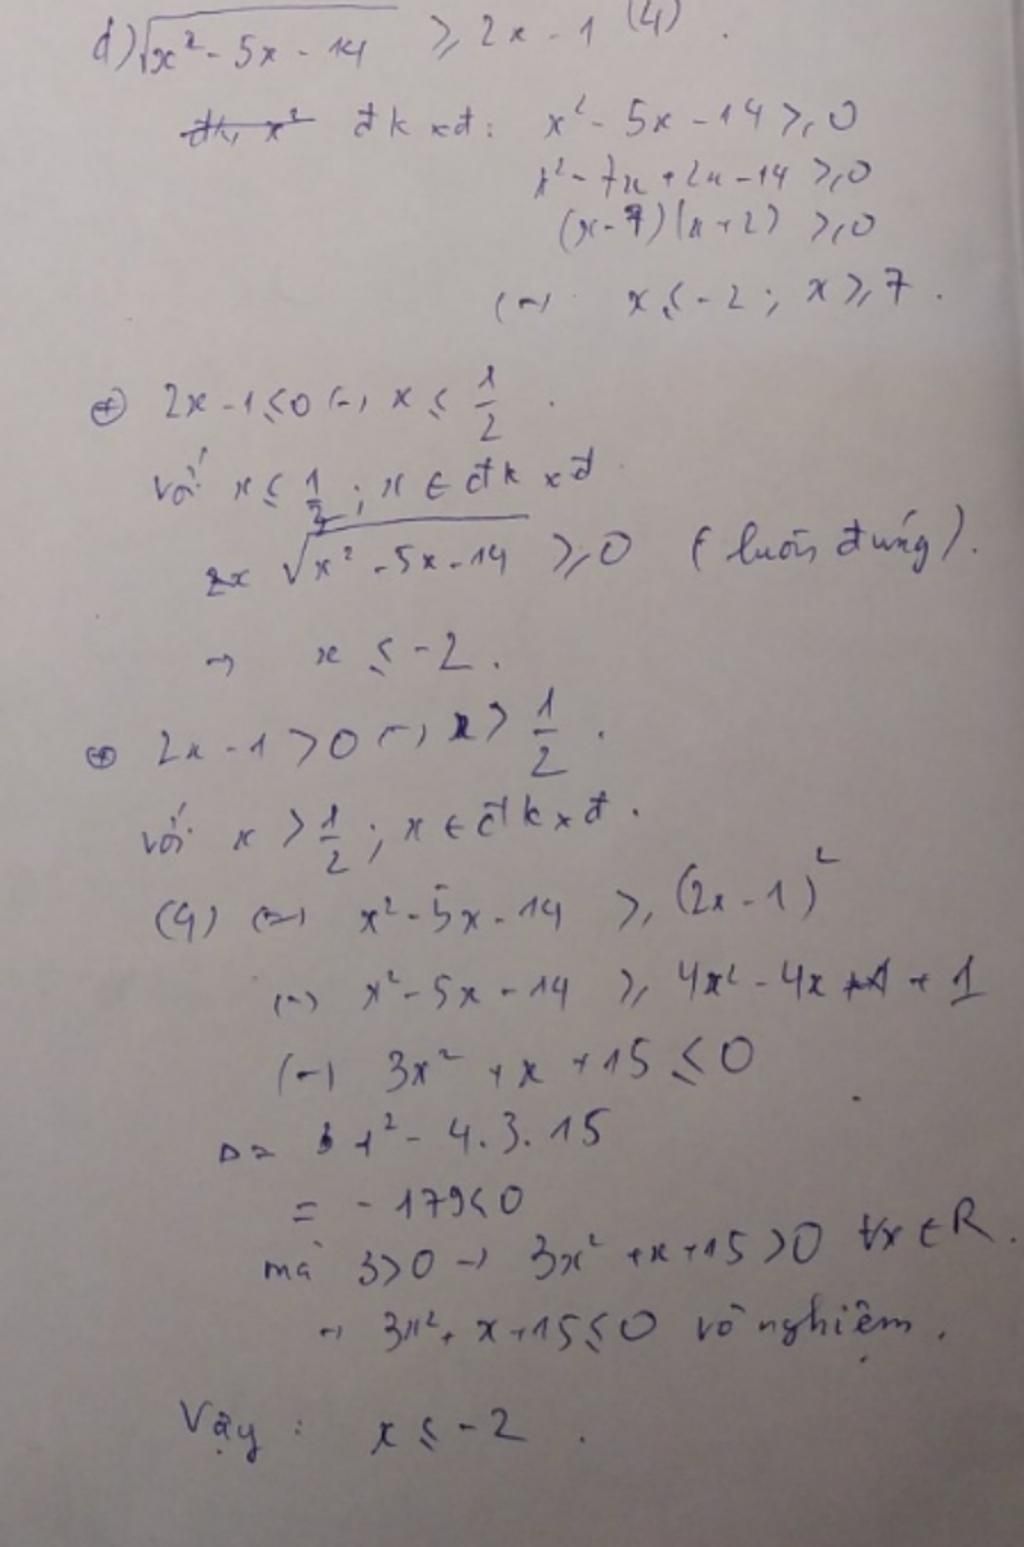 d) √(x² - 5x - 14) ≥ 2x - 1 (4).
đkxđ: x² - 5x - 14 ≥ 0
x² - 7x + 2x - 14 ≥ 0
(x - 7)(x + 2) ≥ 0
(→) x ≤ -2; x ≥ 7.
⊕ 2x - 1 ≤ 0 (→) x ≤ 1/2.
với x ≤ 1/2; x ∈ đkxđ
√(x² - 5x - 14) ≥ 0 (luôn đúng).
→ x ≤ -2.
⊕ 2x - 1 > 0 (→) x > 1/2.
với x > 1/2; x ∈ đkxđ.
(4) (→) x² - 5x - 14 ≥ (2x - 1)²
(→) x² - 5x - 14 ≥ 4x² - 4x + 1
(→) 3x² + x + 15 ≤ 0
Δ = 1² - 4.3.15
= -179 < 0
mà 3 > 0 → 3x² + x + 15 > 0 ∀x ∈ R.
→ 3x² + x + 15 ≤ 0 vô nghiệm.
Vậy : x ≤ -2.